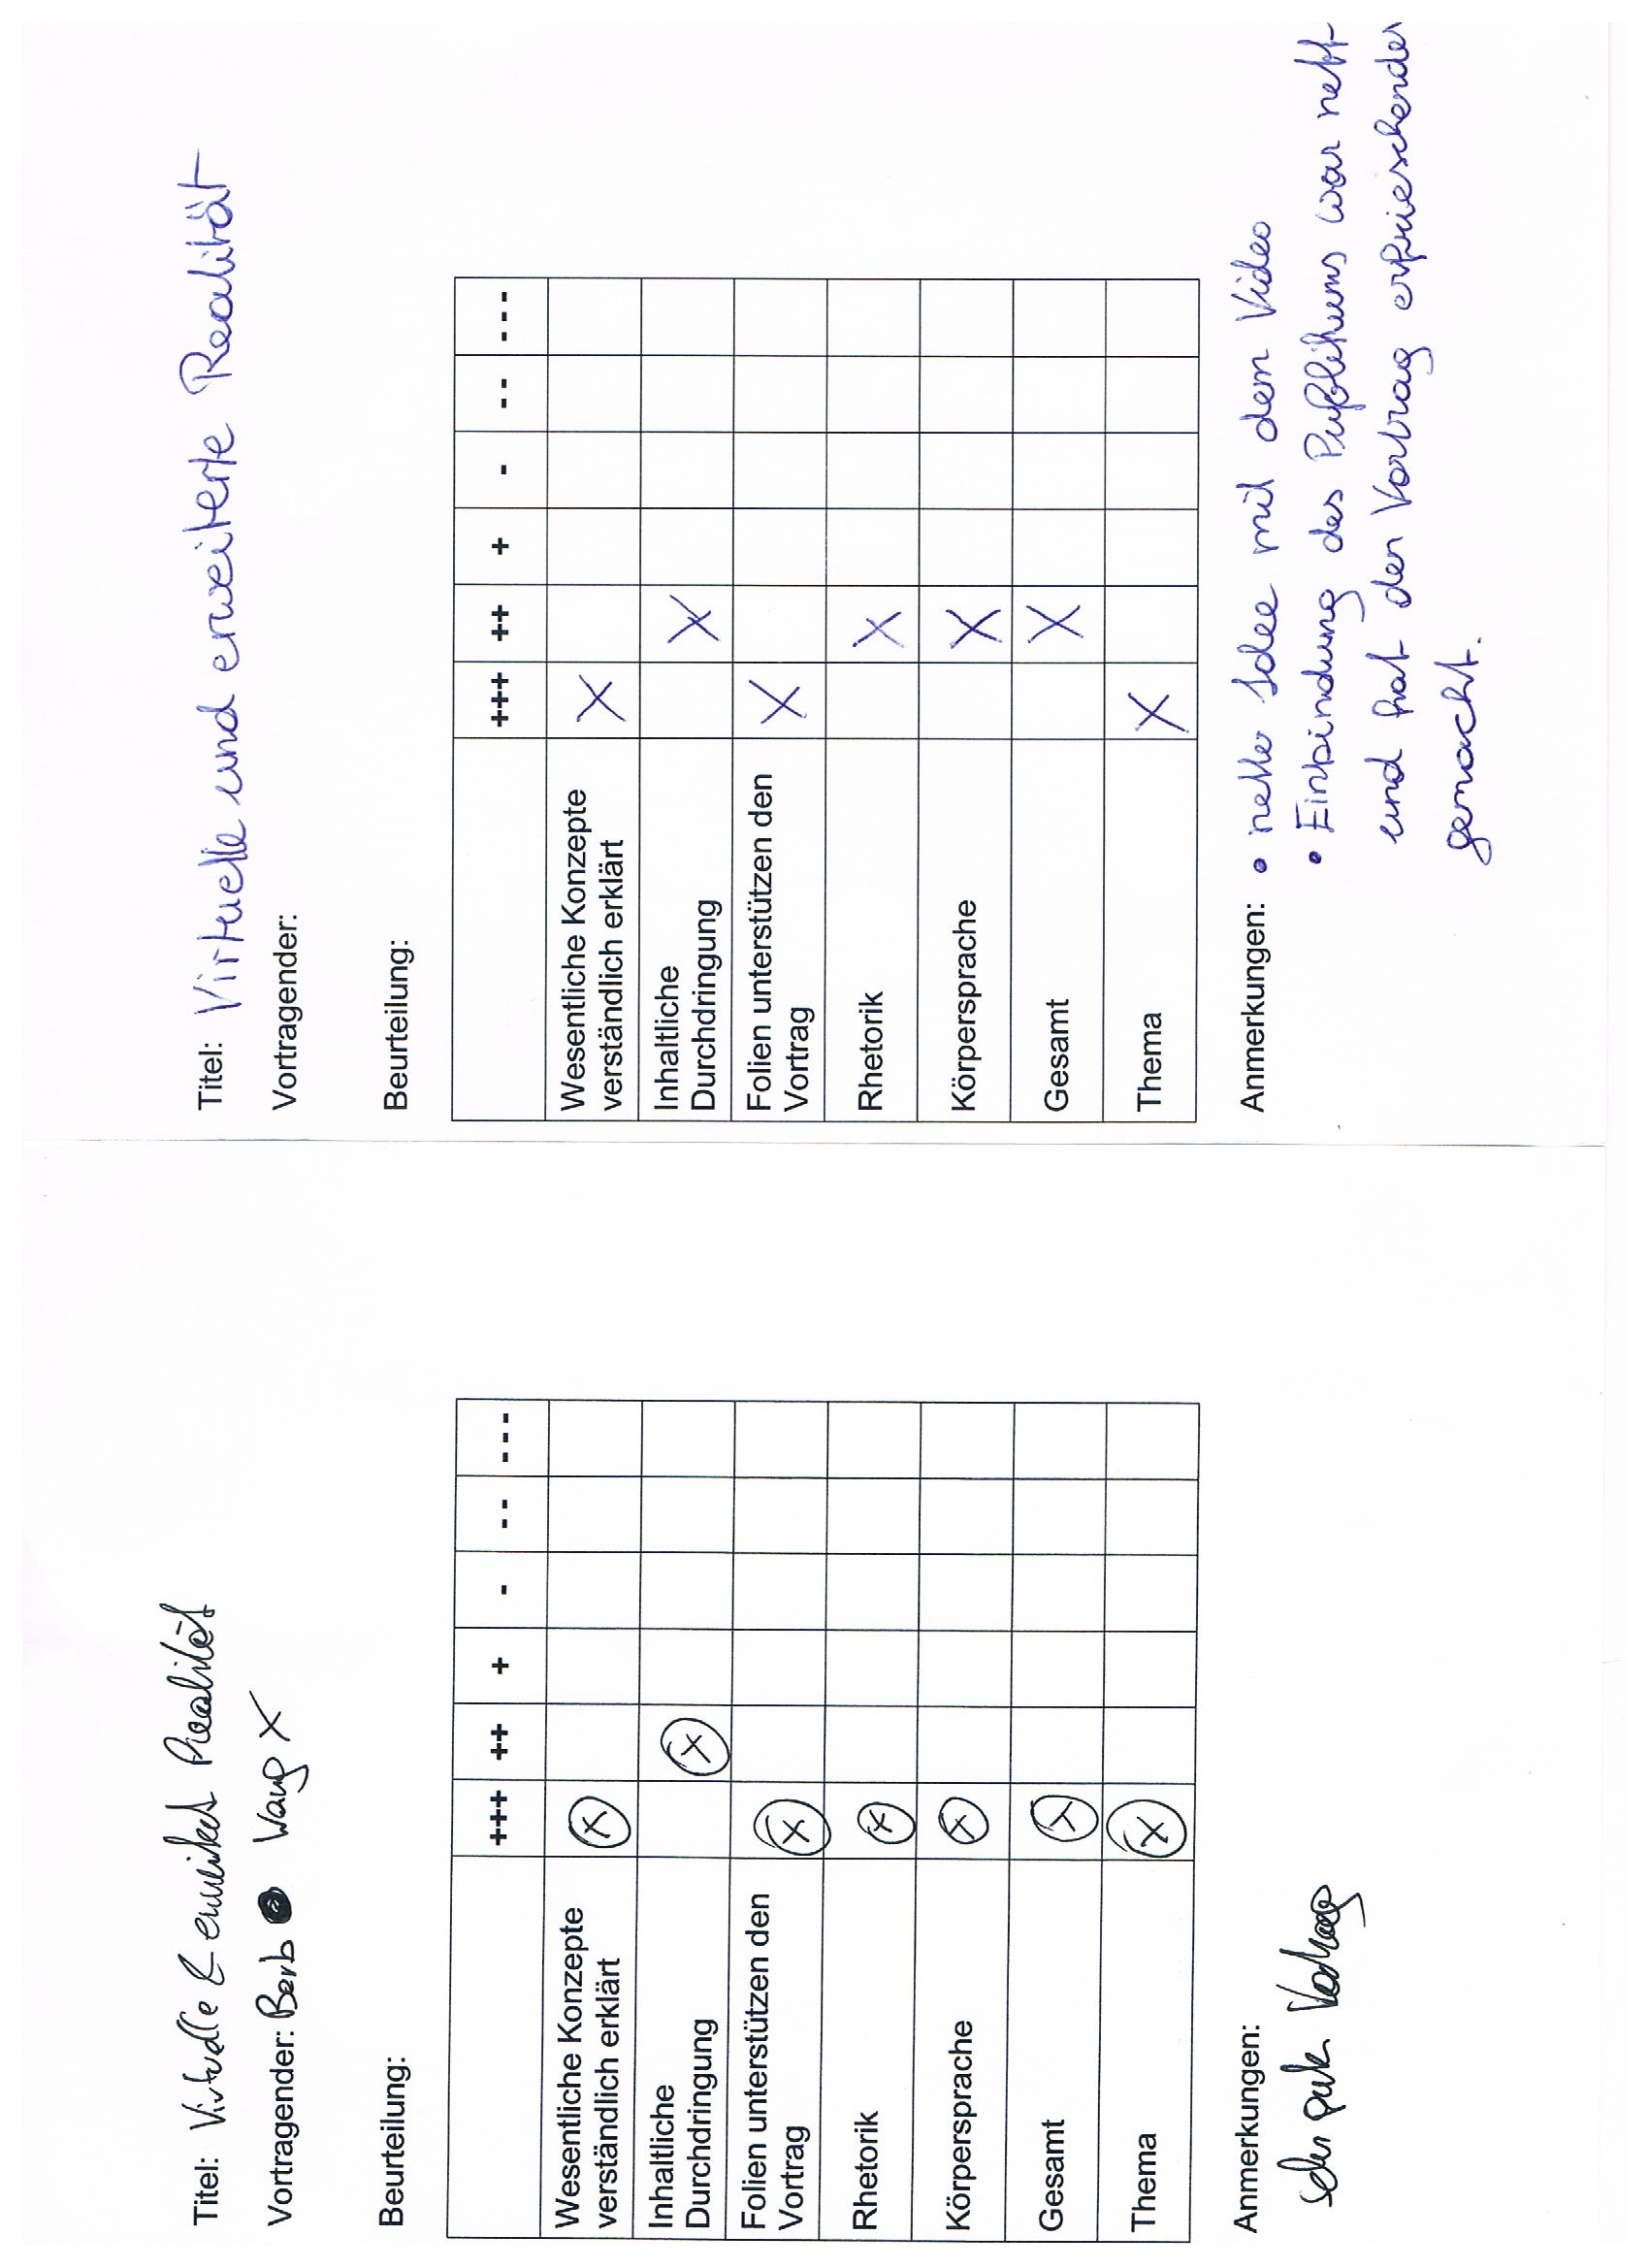 Titel: Virtuelle & erweiterte Realität
Vortragender: Barb Wang X
Beurteilung:
+++ ++ + - -- ---
Wesentliche Konzepte
verständlich erklärt X
Inhaltliche
Durchdringung X
Folien unterstützen den
Vortrag X
Rhetorik X
Körpersprache X
Gesamt X
Thema X
Anmerkungen:
sehr guter Vortrag
Titel: Virtuelle und erweiterte Realität
Vortragender:
Beurteilung:
+++ ++ + - -- ---
Wesentliche Konzepte
verständlich erklärt X
Inhaltliche
Durchdringung X
Folien unterstützen den
Vortrag X
Rhetorik X
Körpersprache X
Gesamt X
Thema X
Anmerkungen: • nette Idee mit dem Video
• Einbindung des Publikums war nett
und hat den Vortrag erfrieschender
gemacht.